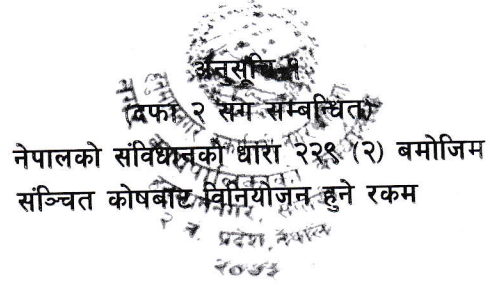 अनुसूचि १
(दफा २ संग सम्बन्धित)
नेपालको संविधानको धारा २२९ (२) बमोजिम
संञ्चित कोषबाट विनियोजन हुने रकम
२ नं. प्रदेश, नेपाल
२०७३